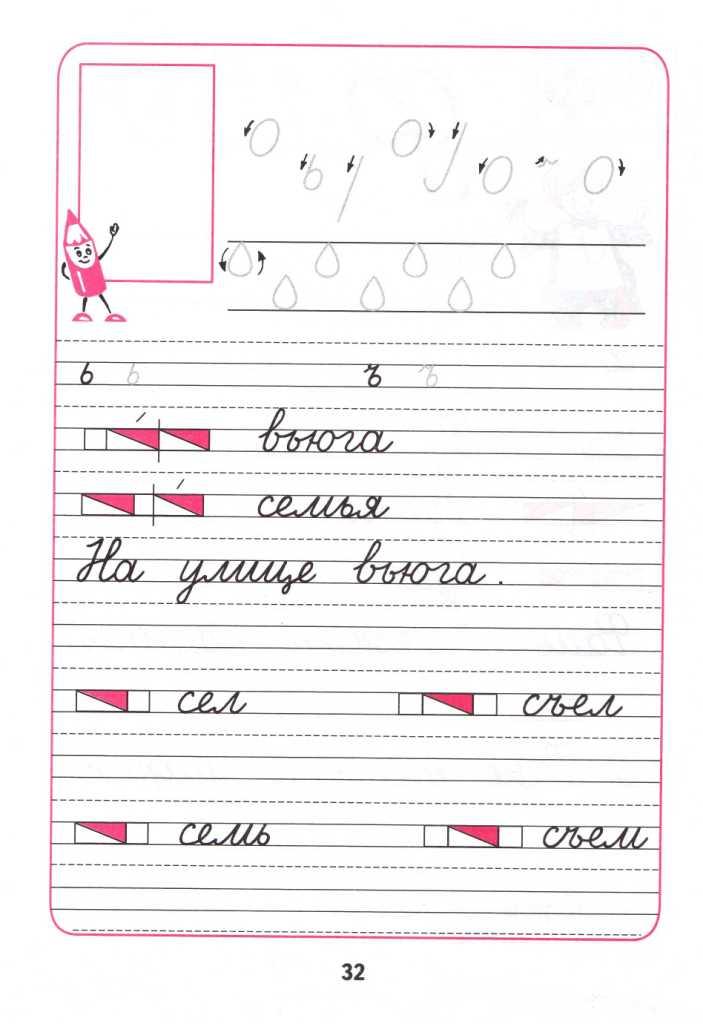 ь ь ъ ъ
вьюга
семья
На улице вьюга.
сел съел
семь съем
32